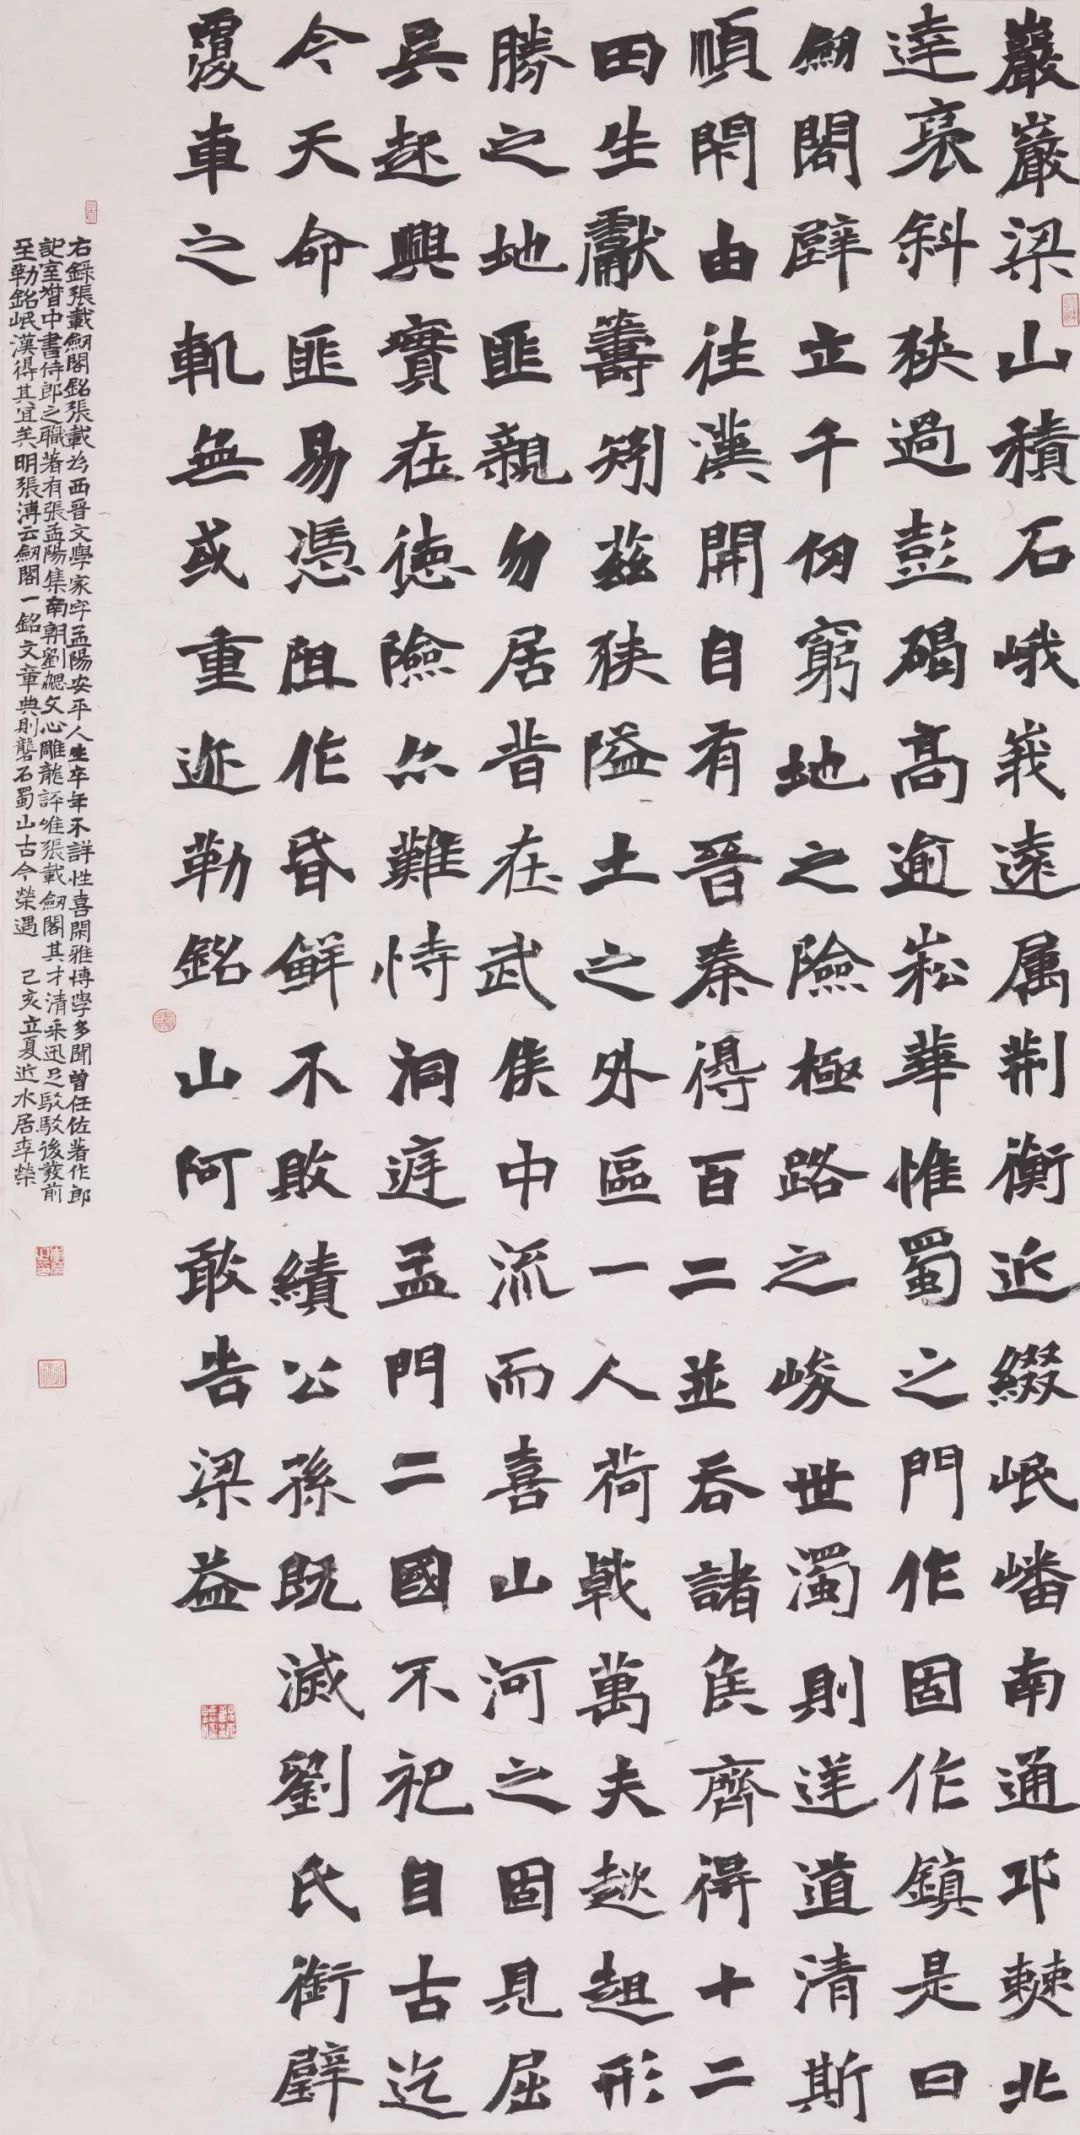 巖巖梁山積石峨峩遠属荆衡近綴岷嶓南通邛僰北
達褒斜狹過彭碣髙逾崧華惟蜀之門作固作鎮是曰
劒閣壁立千仞窮地之險極路之峻世濁則逆道清斯
順閇由往漢開自有晉秦得百二並吞諸侯齊得十二
田生獻籌矧兹狹隘土之外區一人荷戟萬夫趑趄形
勝之地匪親勿居昔在武侯中流而喜山河之固見屈
吳起興實在德險亦難恃洞庭孟門二國不祀自古迄
今天命匪易憑阻作昏鮮不敗績公孫既滅劉氏銜璧
覆車之軌無或重迹勒銘山阿敢告梁益
右錄張載劒閣銘張載爲西晉文學家字孟陽安平人生卒年不詳性喜閑雅博學多聞曾任佐著作郎
記室督中書侍郎之職著有張孟陽集南朝劉勰文心雕龍評唯張載劒閣其才清采迅足駸駸後發前
至勒銘岷漢得其宜矣明張溥云劒閣一銘文章典則礱石蜀山古今榮遇 己亥立夏近水居李榮